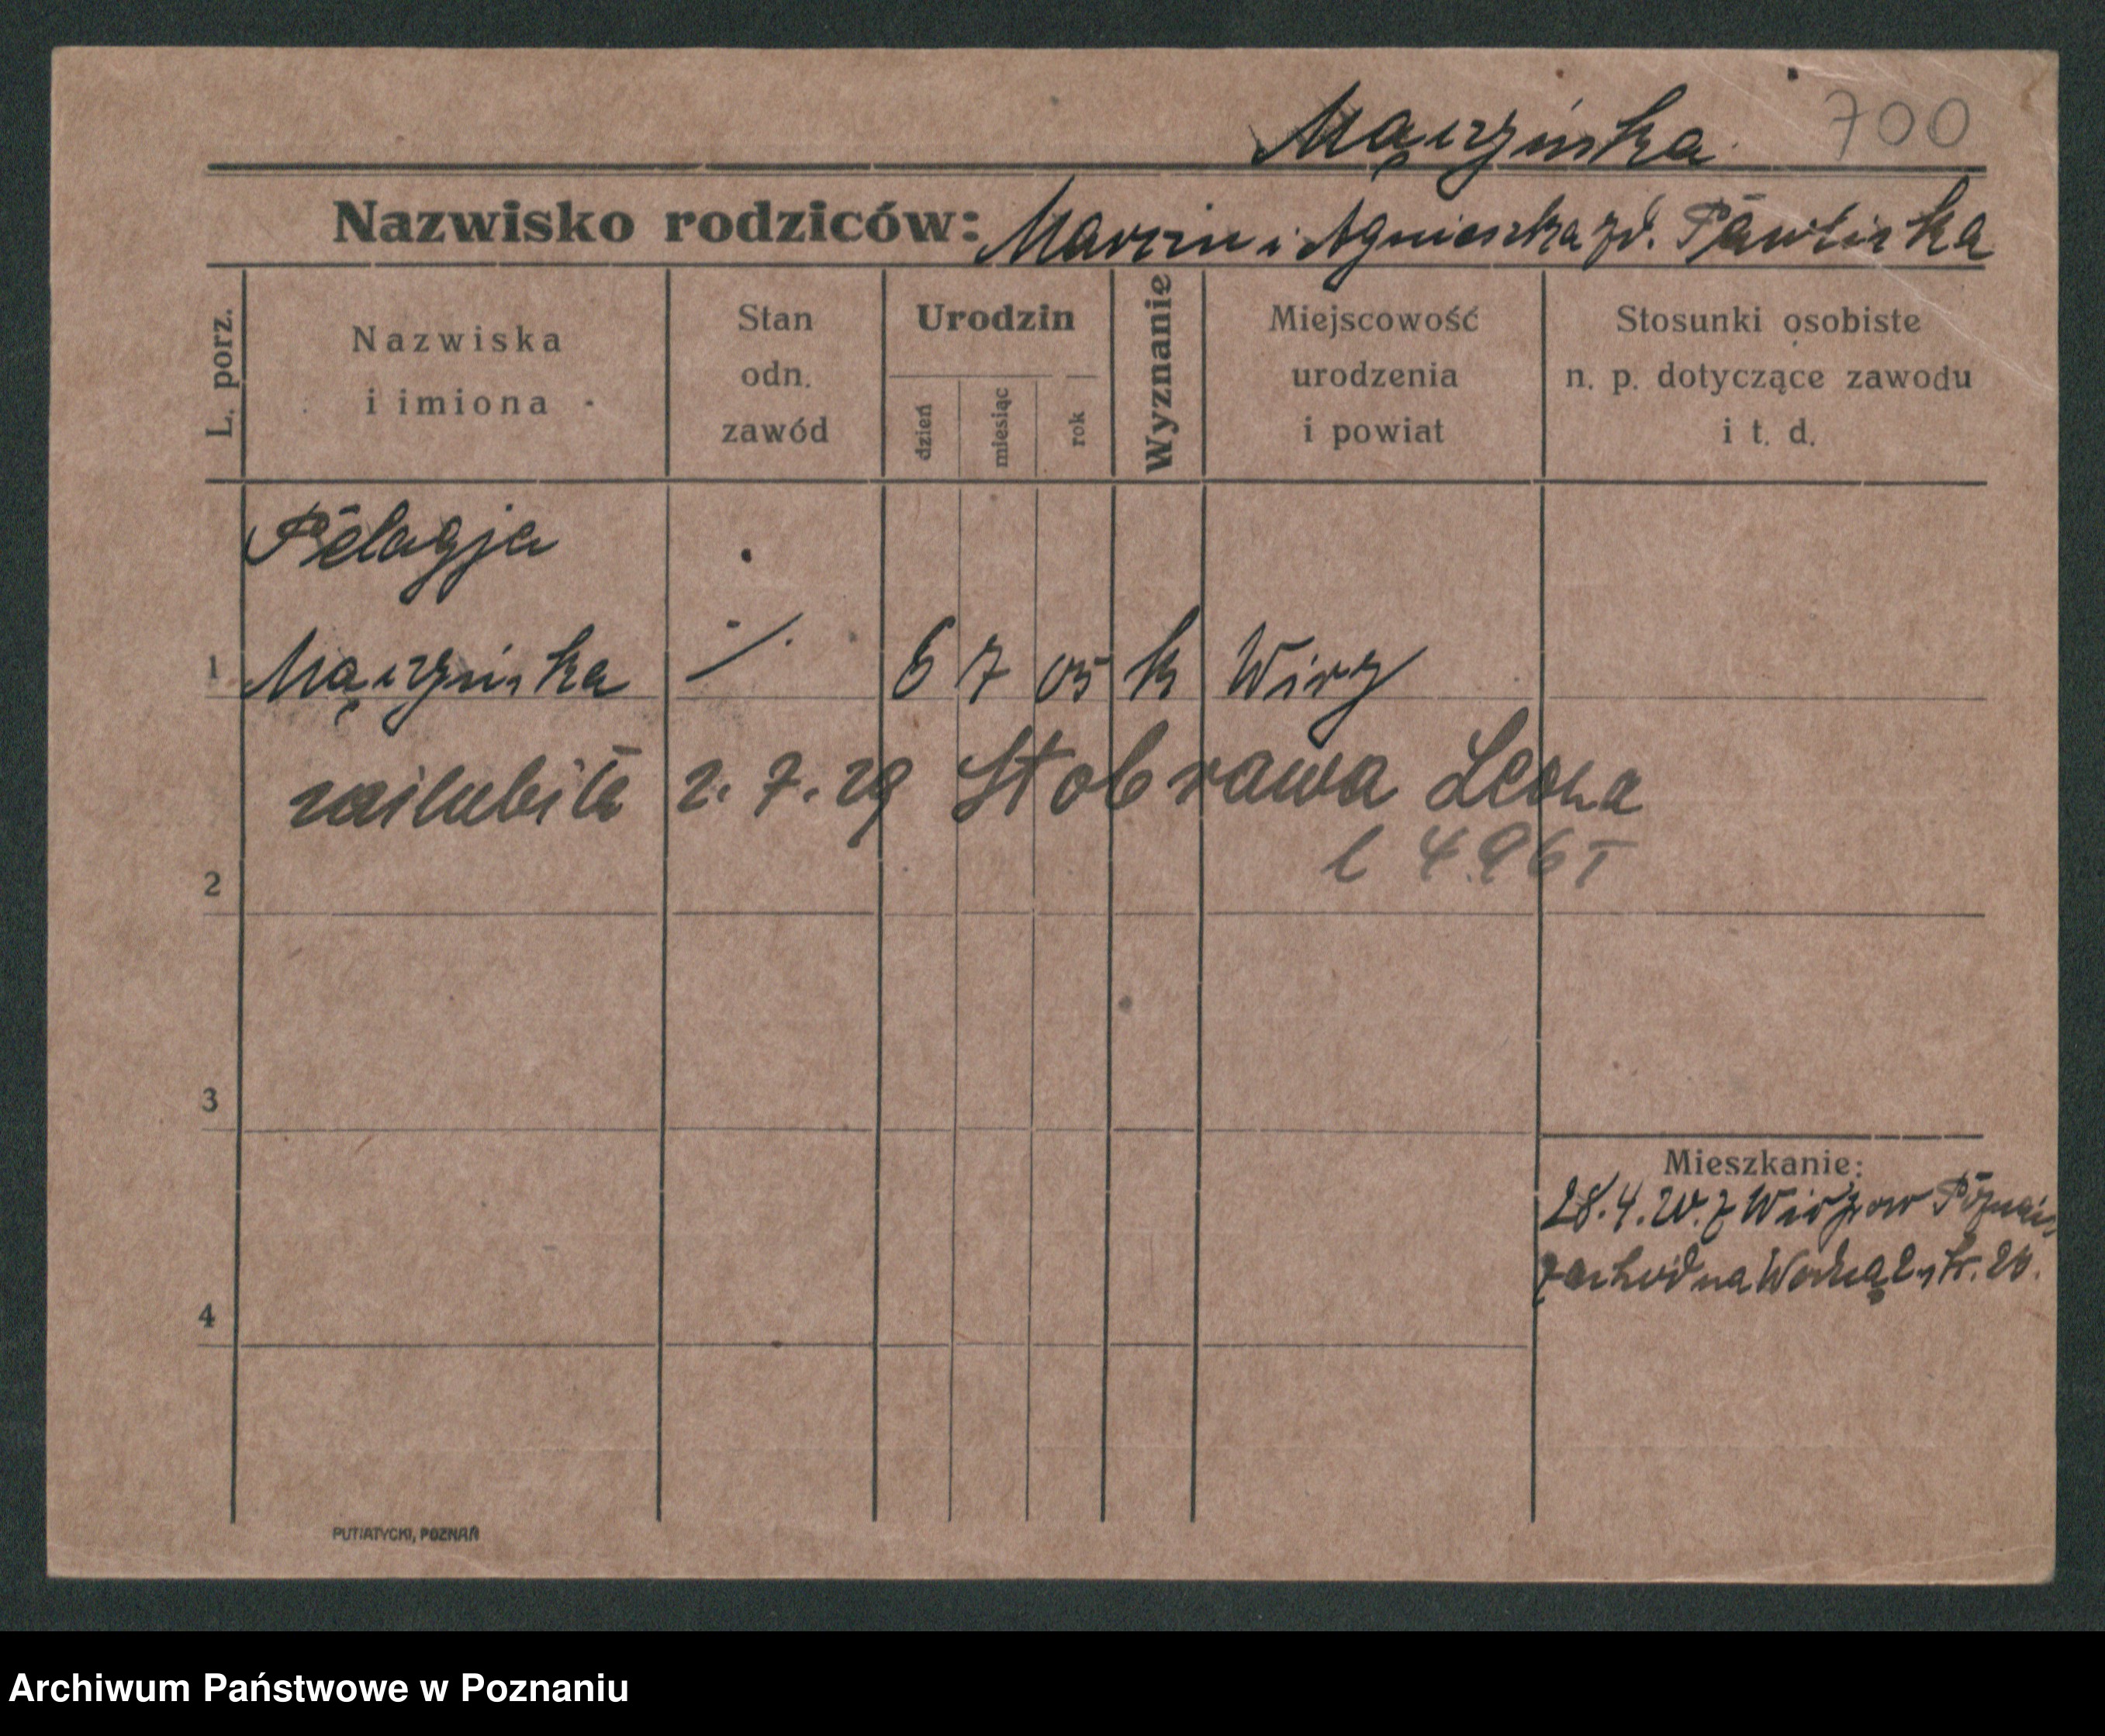 Mączyńska 700
Nazwisko rodziców: Marcin i Agnieszka zd.
L. porz.
Nazwiska
i imiona
Stan
odn.
zawód
Urodzin
dzień
miesiąc
rok
Wyznanie
Miejscowość
urodzenia
i powiat
Stosunki osobiste
n. p. dotyczące zawodu
i t. d.
Pelagja
1 Mączyńska ·/. 6 7 05 k Wiry
2. 7. 29 Stobrawa Leona
l 496 I
2
3
4
Mieszkanie:
28.4. z Wir pow Poznań
PUTIATYCKI, POZNAŃ
Archiwum Państwowe w Poznaniu